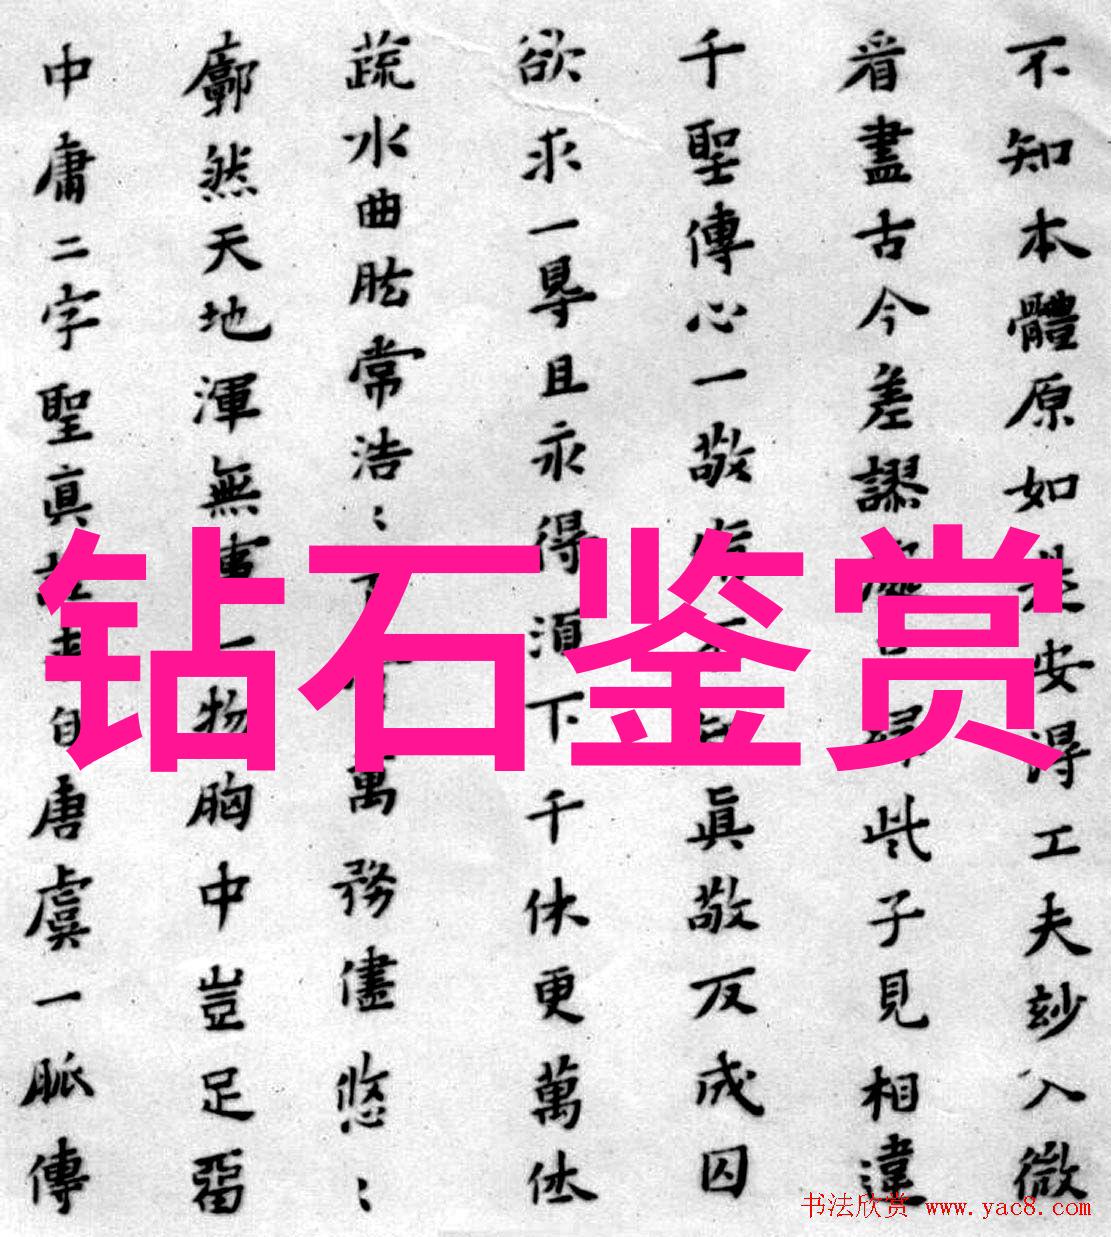 不知本體原如是安得工夫妙入微
看盡古今差謬處只緣此子見相違
千聖傳心一敬真敬反成囚
欲求一尋且永得須下千休更萬休
蔬水曲肱常浩：萬務儘悠：
廓然天地渾無事一物胸中豈足留
中庸二字聖真自唐虞一脈傳
钻石鉴赏
书法欣赏 www.yac8.com